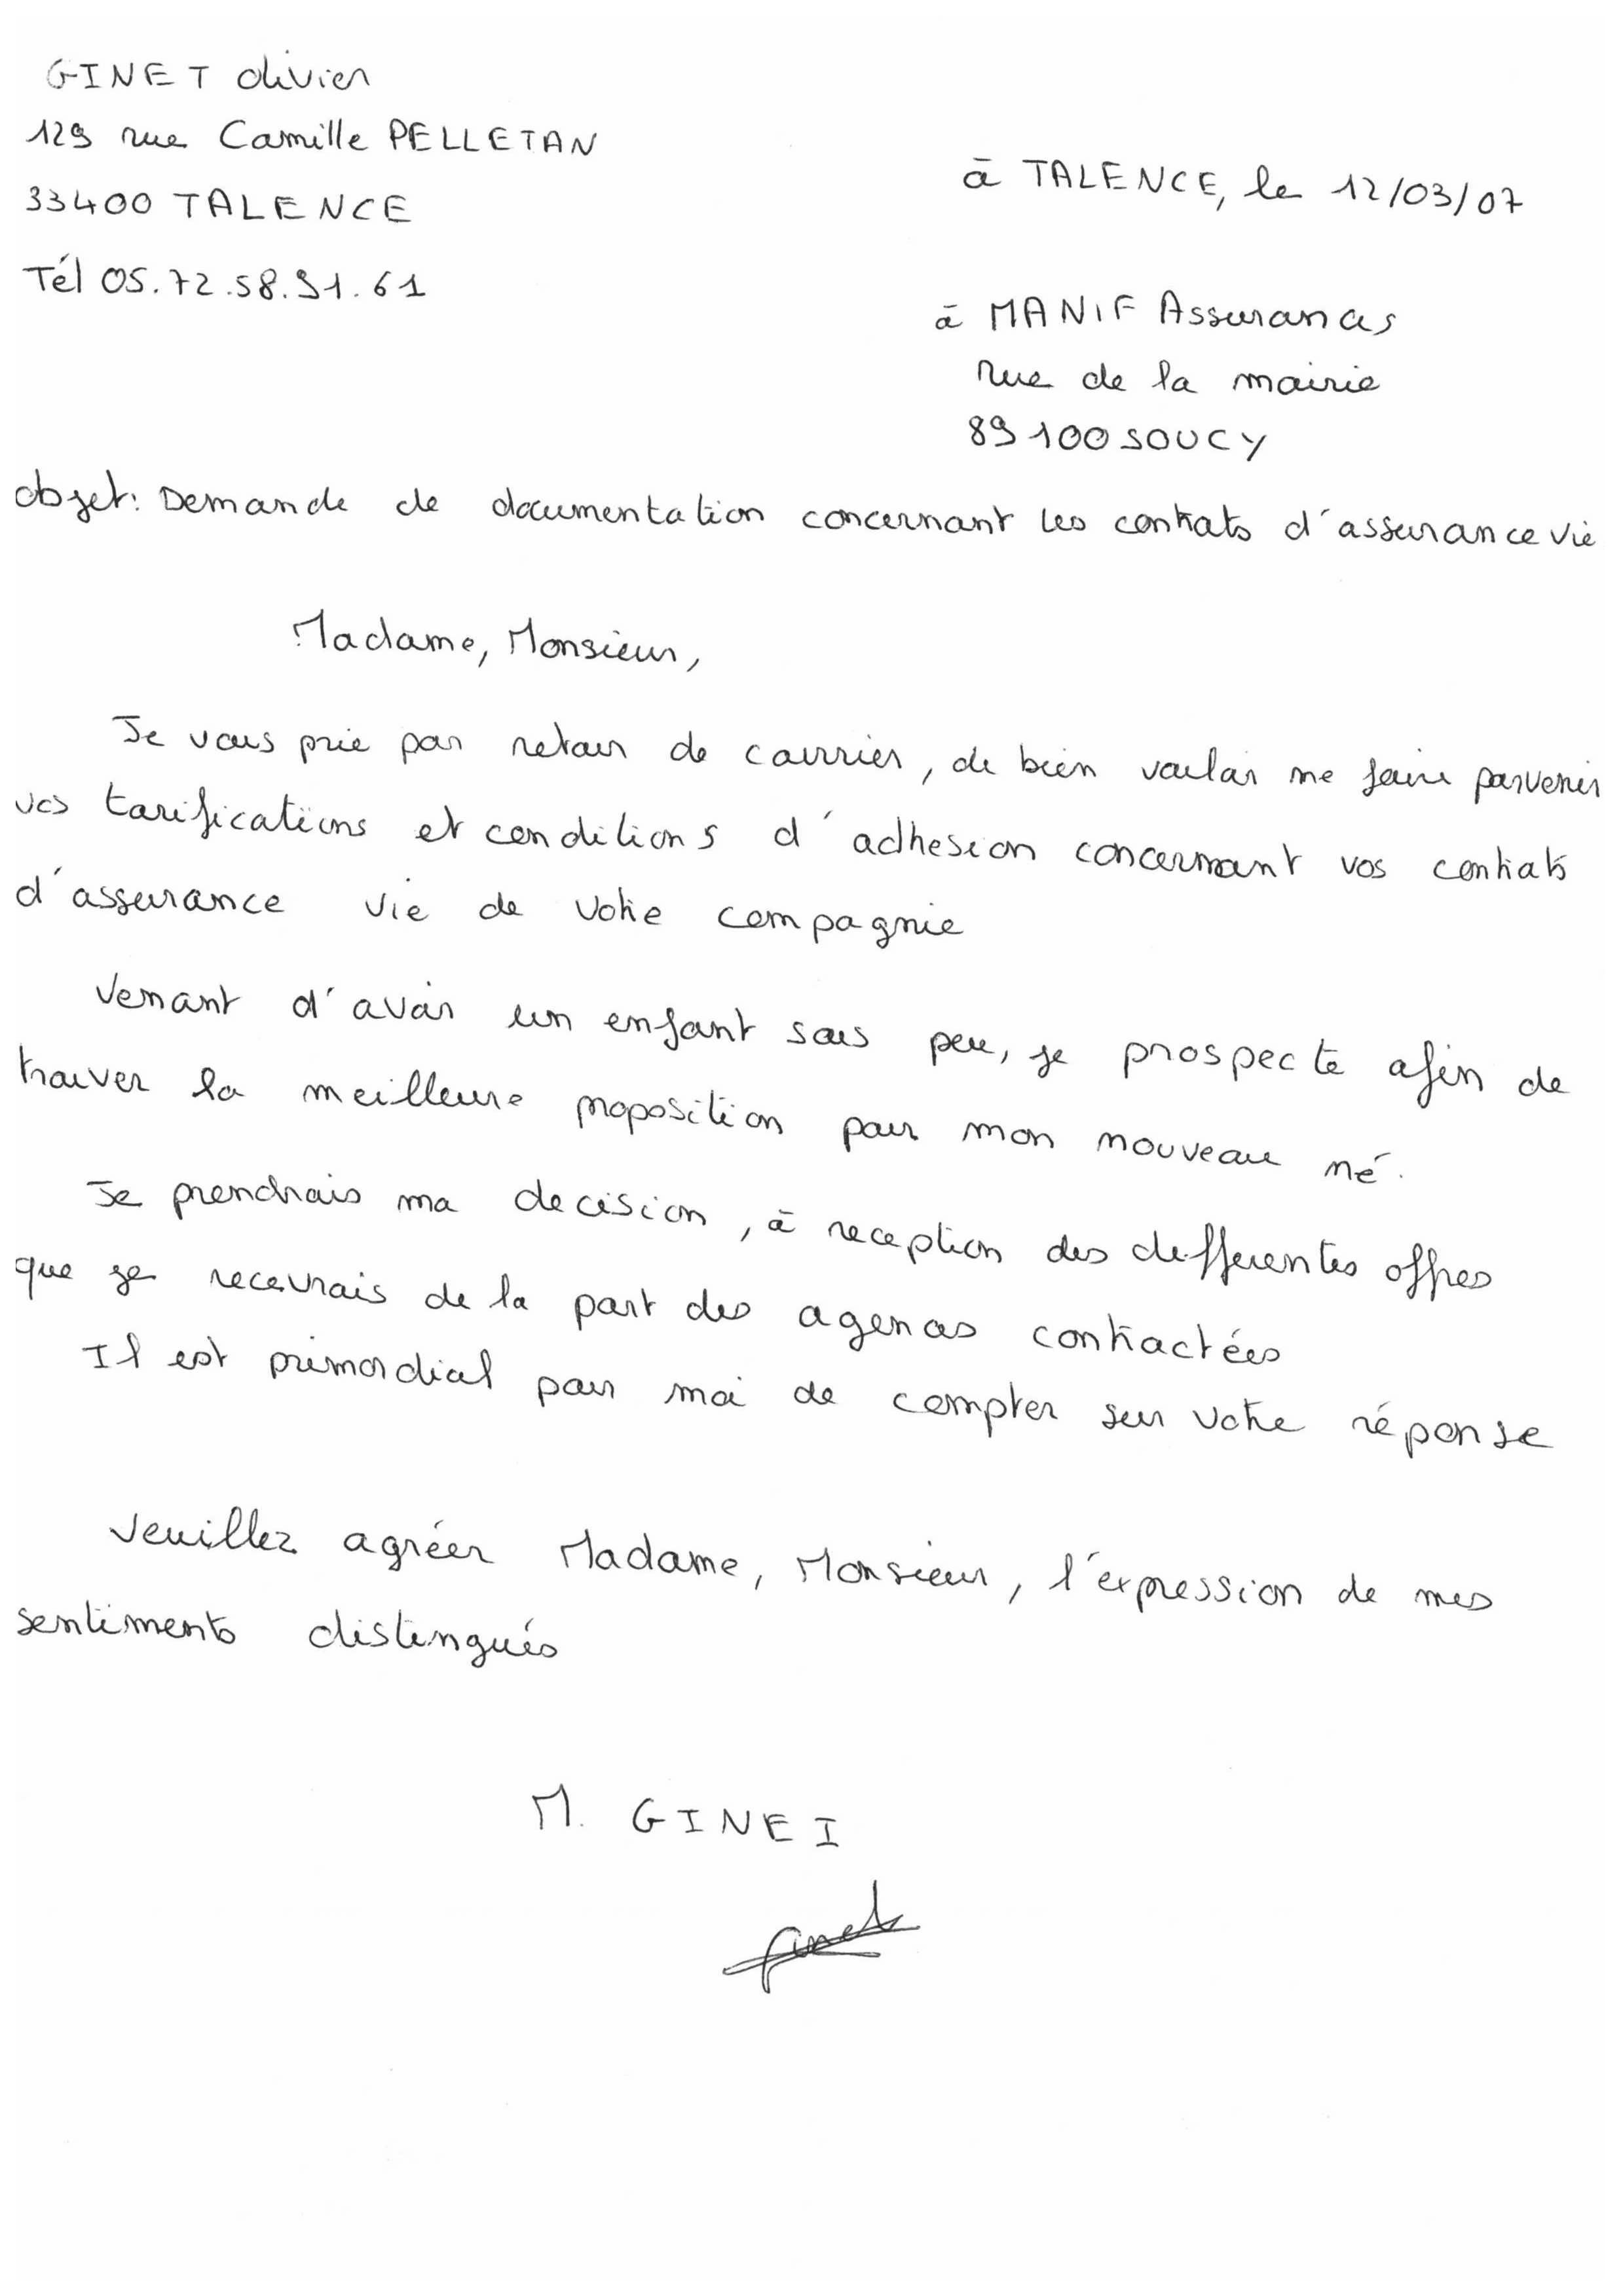 GINET Olivier
129 rue Camille PELLETAN
33400 TALENCE
Tél 05.72.58.91.61
à TALENCE, le 12/03/07
à MANIF Assurances
rue de la mairie
89100 SOUCY
objet: Demande de documentation concernant les contrats d'assurance vie
Madame, Monsieur,
Je vous prie par retour de courrier, de bien vouloir me faire parvenir
vos tarifications et conditions d'adhesion concernant vos contrats
d'assurance vie de votre compagnie
Venant d'avoir un enfant sous peu, je prospecte afin de
trouver la meilleure proposition pour mon nouveau né.
Je prendrais ma decision, à reception des differentes offres
que je recevrais de la part des agences contactées
Il est primordial pour moi de compter sur votre réponse
Veuillez agréer Madame, Monsieur, l'expression de mes
sentiments distingués
M. GINET
Ginet